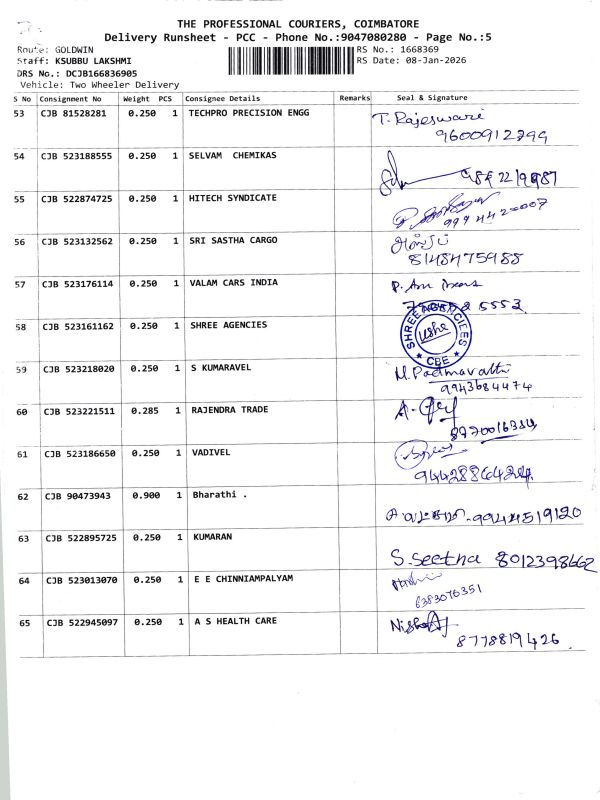 THE PROFESSIONAL COURIERS, COIMBATORE
Delivery Runsheet - PCC - Phone No.:9047080280 - Page No.:5
Route: GOLDWIN
RS No.: 1668369
Staff: KSUBBU LAKSHMI
RS Date: 08-Jan-2026
DRS No.: DCJB166836905
Vehicle: Two Wheeler Delivery
S No Consignment No Weight PCS Consignee Details Remarks Seal & Signature
53 CJB 81528281 0.250 1 TECHPRO PRECISION ENGG T. Rajeswari
54 CJB 523188555 0.250 1 SELVAM CHEMIKAS
55 CJB 522874725 0.250 1 HITECH SYNDICATE
9994420007
56 CJB 523132562 0.250 1 SRI SASTHA CARGO
8148475988
57 CJB 523176114 0.250 1 VALAM CARS INDIA
58 CJB 523161162 0.250 1 SHREE AGENCIES SHREE AGENCIEES CBE
59 CJB 523218020 0.250 1 S KUMARAVEL M. Padmavathi
9943684474
60 CJB 523221511 0.285 1 RAJENDRA TRADE
61 CJB 523186650 0.250 1 VADIVEL
62 CJB 90473943 0.900 1 Bharathi .
9944519120
63 CJB 522895725 0.250 1 KUMARAN
S. Seetha 8012398662
64 CJB 523013070 0.250 1 E E CHINNIAMPALYAM
6383076351
65 CJB 522945097 0.250 1 A S HEALTH CARE
8778819426